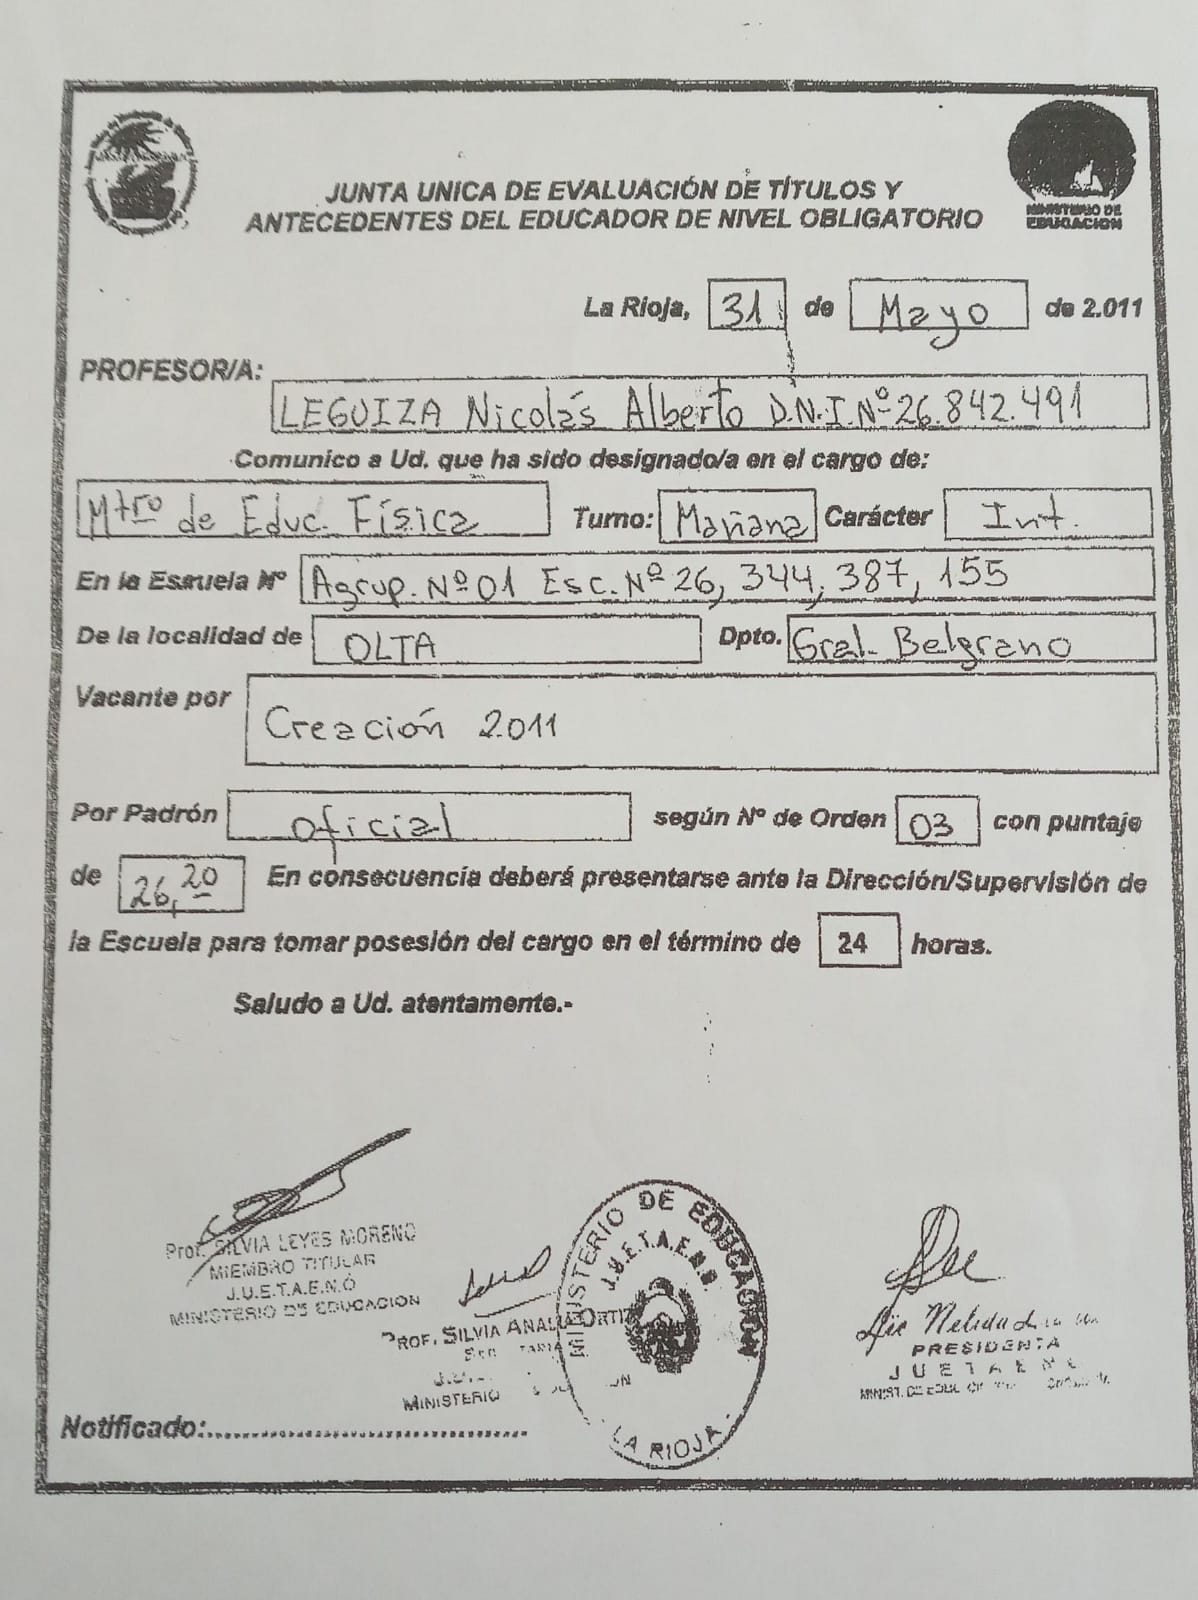 JUNTA UNICA DE EVALUACIÓN DE TÍTULOS Y
ANTECEDENTES DEL EDUCADOR DE NIVEL OBLIGATORIO
MINISTERIO DE
EDUCACION
La Rioja, 31 de Mayo de 2.011
PROFESOR/A:
LEGUIZA Nicolás Alberto D.N.I. Nº 26.842.491
Comunico a Ud. que ha sido designado/a en el cargo de:
Mtro de Educ. Física Turno: Mañana Carácter Int.
En la Escuela Nº Agrup. Nº 01 Esc. Nº 26, 344, 387, 155
De la localidad de OLTA Dpto. Gral. Belgrano
Vacante por Creación 2011
Por Padrón oficial según Nº de Orden 03 con puntaje
de 26,20 En consecuencia deberá presentarse ante la Dirección/Supervisión de
la Escuela para tomar posesión del cargo en el término de 24 horas.
Saludo a Ud. atentamente.-
Prof. SILVIA LEYES MORENO
MIEMBRO TITULAR
J.U.E.T.A.E.N.O
MINISTERIO DE EDUCACION
PROF. SILVIA ANALIA ORTIZ
MINISTERIO
MINISTERIO DE EDUCACION
J.U.E.T.A.E.N.O.
LA RIOJA
Lic Nelida
PRESIDENTA
J U E T A E N O
Notificado: